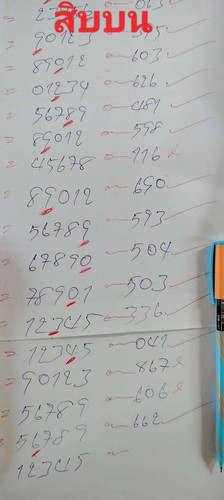 063
สิบบน
= 90123 515
= 89012 603
= 01234 626
= 56789 481
= 89012 598
= 45678 116
= 89012 690
= 56789 593
= 67890 504
= 78901 503
= 12345 336
= 12345 041
= 90123 867
= 56789 606
= 56789 662
12345